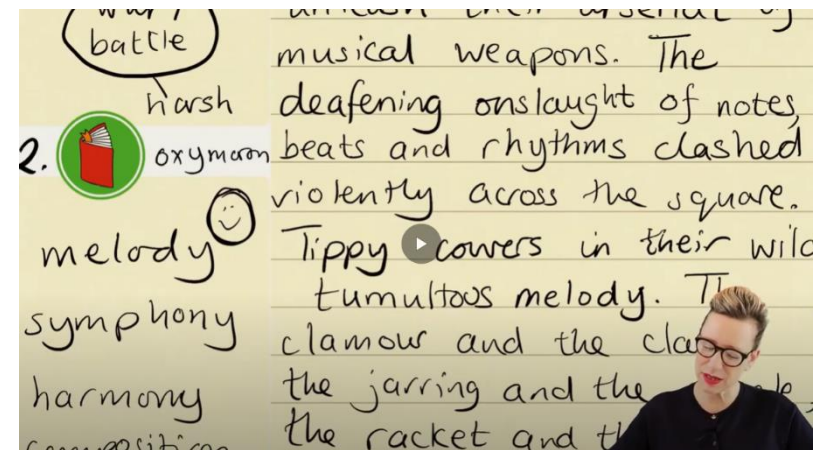 war /
battle
harsh
2.
oxymoron
melody
symphony
harmony
musical weapons. The
deafening onslaught of notes,
beats and rhythms clashed
violently across the square.
Tippy cowers in their wild
tumultous melody.
clamour and the
the jarring and the
the racket and